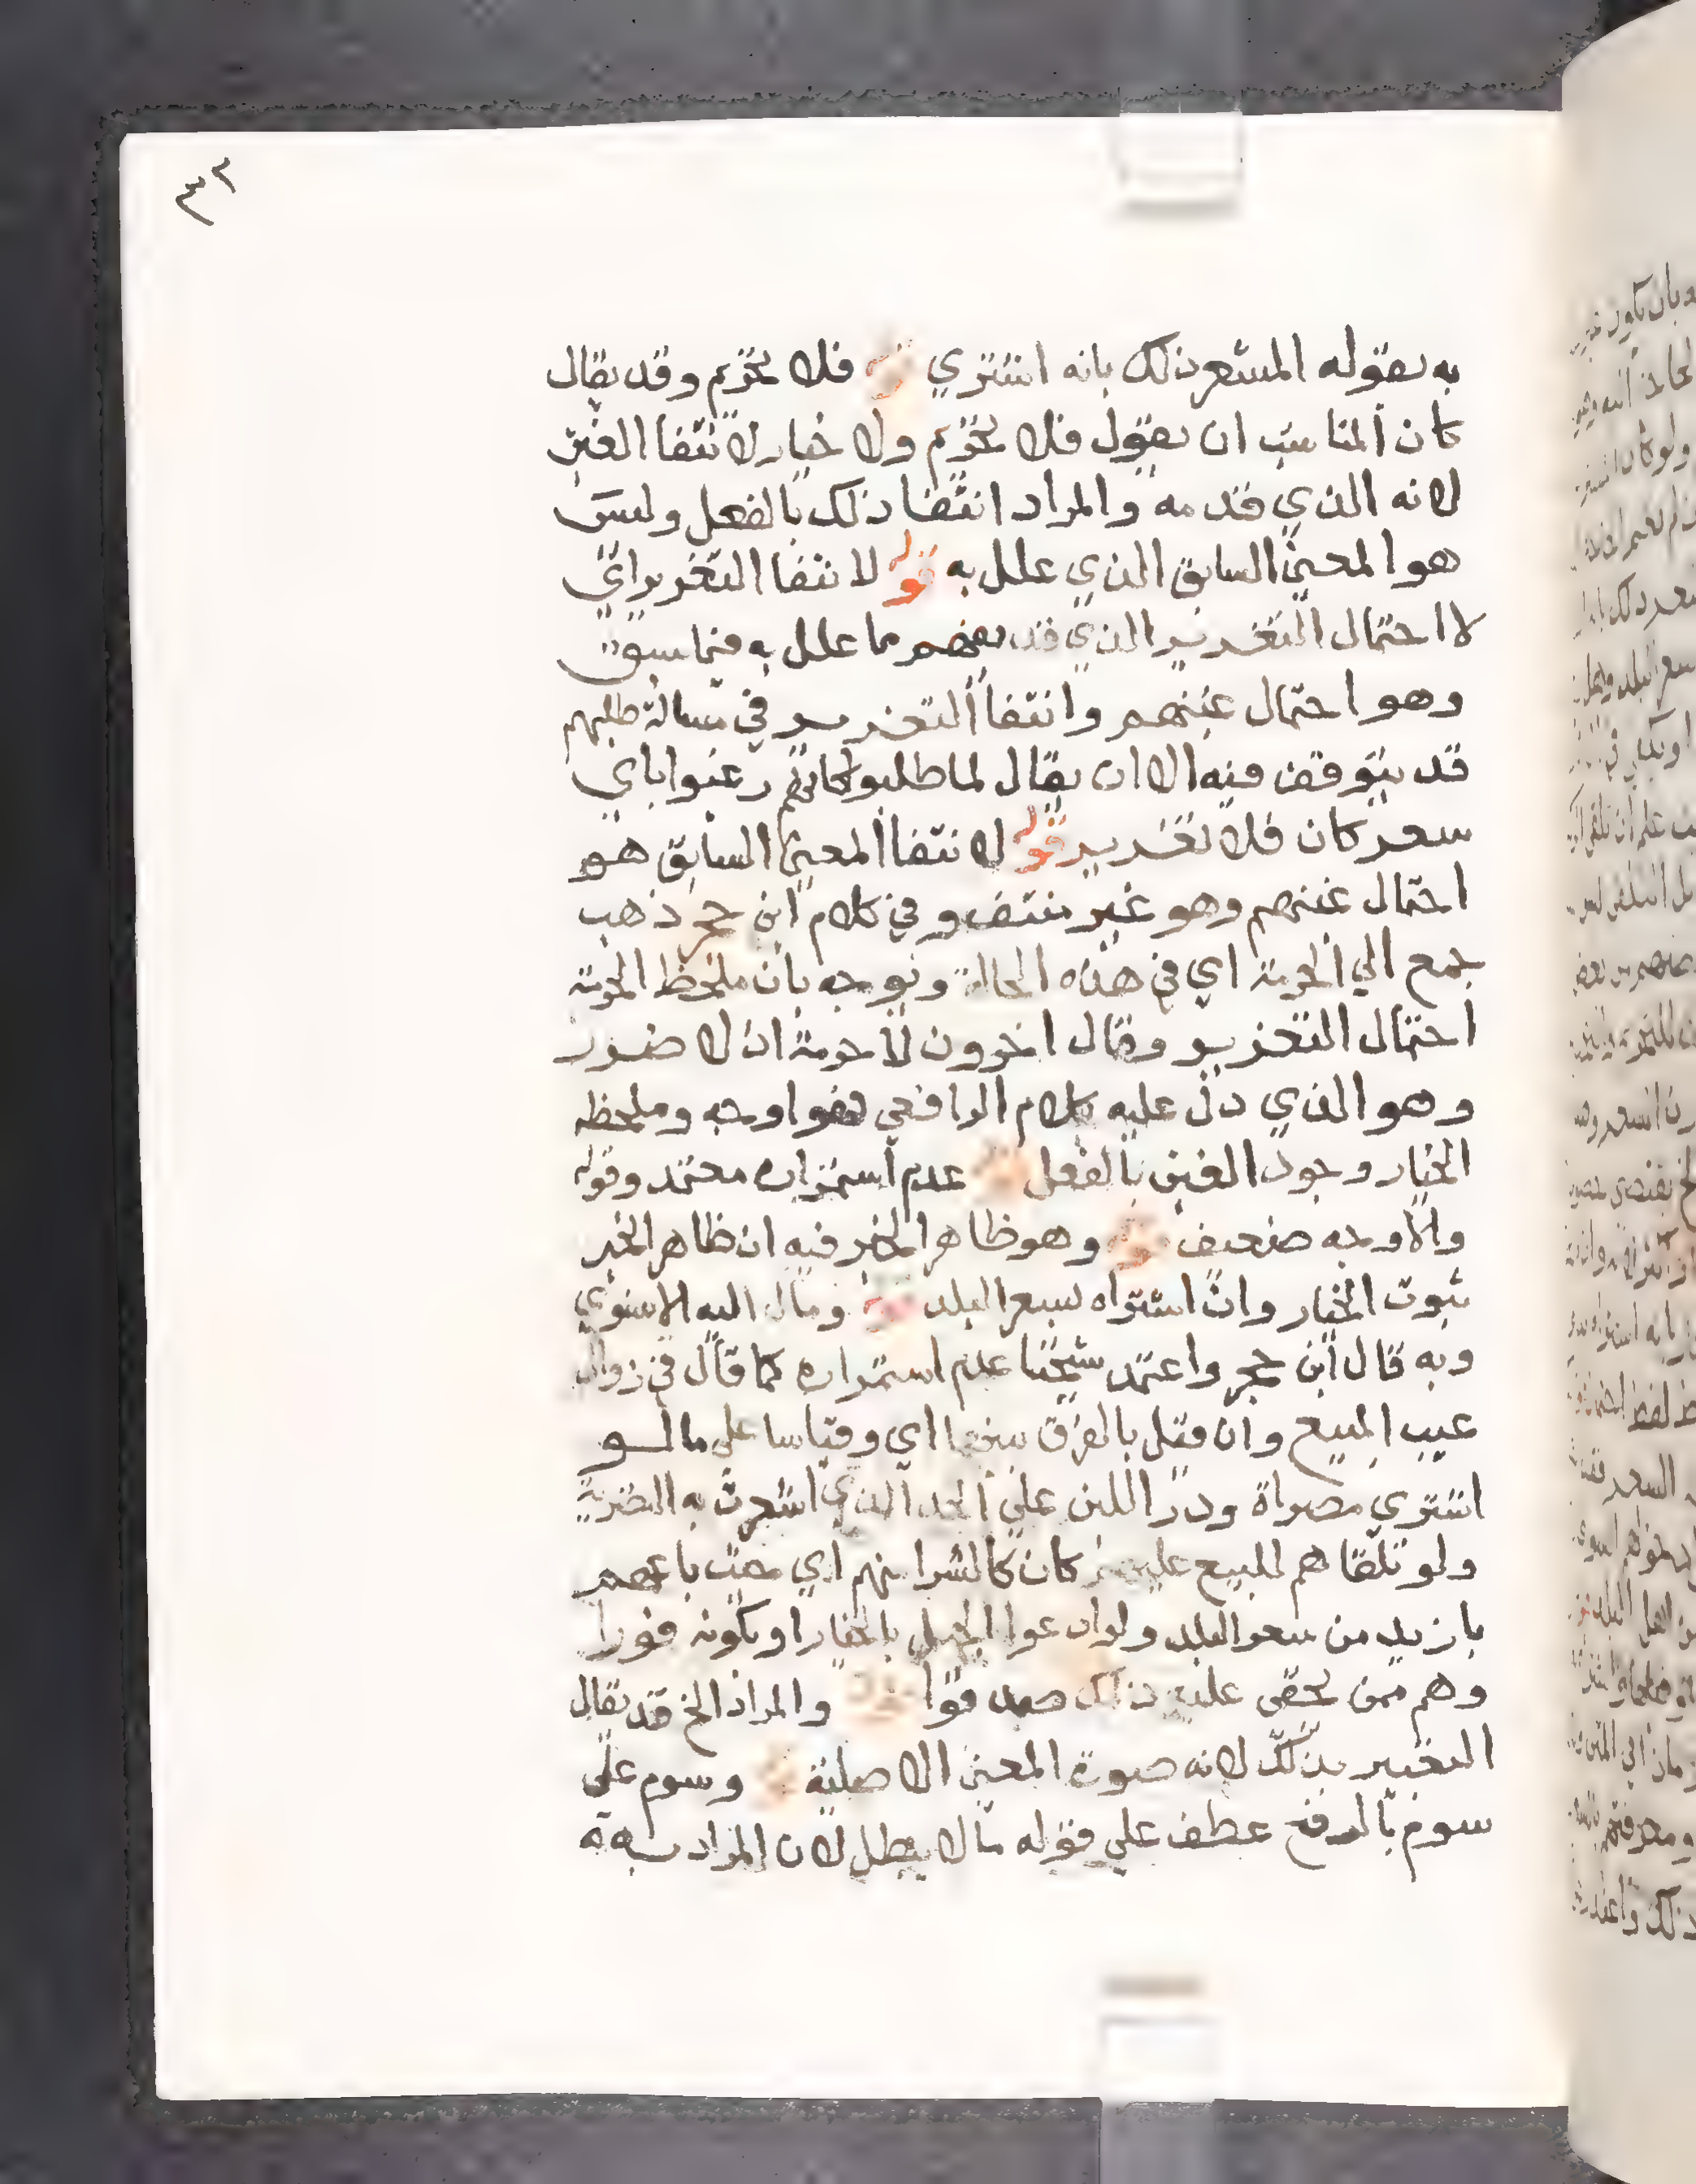 ٣٢
به بقوله المشعر ذلك بانه اشتري قوله فلا تحريم وقد يقال
كان المناسب ان يقول فلا تحريم ولا خيار لانتفا الغبن
لانه الذي قدمه والمراد انتفا ذلك بالفعل وليس
هو المعني السابق الذي علل به قوله لانتفا التغرير اي
لا احتمال التغرير الذي قد مما علل به فيما سبق
وهو احتمال غبنهم وانتفا التغرير في مسالة طلبهم
قد يتوقف فيه الا ان يقال لما طلبوا رغبوا باي
سعر كان فلا تغرير قوله لانتفا المعني السابق هو
احتمال غبنهم وهو غير منتف وفي كلام ابن حجر ذهب
جمع الي الحرمة اي في هذه الحالة ويوجه بان ملحظ الحرمة
احتمال التغرير وقال اخرون لا حرمة اذ لا ضرر
وهو الذي دل عليه كلام الرافعي فهو اوجه وملحظ
الخيار وجود الغبن بالفعل قوله عدم استمراره معتمد وقوله
والاوجه ضعيف قوله وهو ظاهر الخبر فيه ان ظاهر الخبر
ثبوت الخيار وان اشتراه بسعر البلد قوله ومال اليه الاسنوي
وبه قال ابن حجر واعتمد شيخنا عدم استمراره كما قال في زوال
عيب المبيع وان قيل بالفرق بينهما اي وقياسا علي ما لو
اشتري مصراة ودر اللبن علي الحد الذي اشعرت به التصرية
ولو تلقاهم للبيع عليهم كان كالشرا منهم اي حيث باعهم
بازيد من سعر البلد ولو ادعوا الجهل بالخيار او بكونه فورا
وهم ممن يخفي عليهم ذلك صدقوا قوله والمراد الخ قد يقال
التعبير بذلك لانه صورة المعني الاصلية قوله وسوم علي
سوم بالرفع عطف علي قوله ما لا يبطل لان المراد به